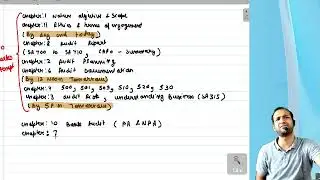 chapter: 1 Nature objective & Scope
chapter: 11 Ethics & terms of engagement
(By day end today)
chapter: 8 Audit Report
(SA 700 to SA 710, CARO - Summary)
chapter: 2 Audit Planning
chapter: 6 Audit Documentation
(By 12 Noon Tomorrow)
chapter: 7 500, 501, 505, 510, 520, 530
chapter: 3 Audit Risk, understanding Business (SA 315)
(By 5 Pm Tomorrow)
chapter: 10 Bank Audit ( PA & NPA )
chapter: ?